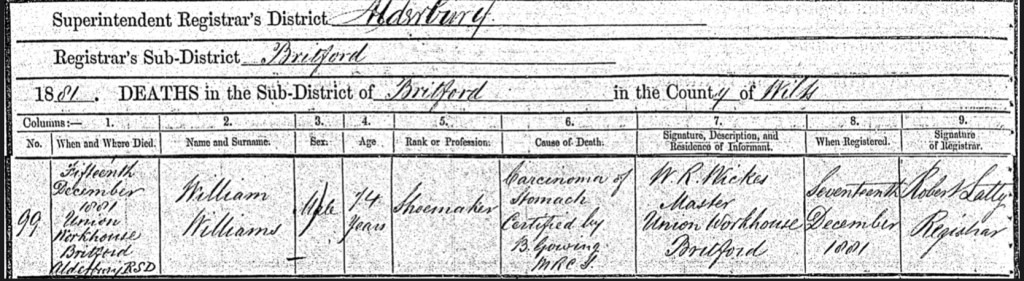 Superintendent Registrar's District Alderbury.
Registrar's Sub-District Britford
1881. DEATHS in the Sub-District of Britford in the County of Wilts
Columns:— 1. 2. 3. 4. 5. 6. 7. 8. 9.
No. When and Where Died. Name and Surname. Sex. Age Rank or Profession. Cause of Death. Signature, Description, and Residence of Informant. When Registered. Signature of Registrar.
99
Fifteenth
December
1881
Union
Workhouse
Britford
Alderbury RSD
William
Williams
Male
74
Years
Shoemaker
Carcinoma of
Stomach
Certified by
B. Gowing
MRCS.
W. R. Wickes
Master
Union Workhouse
Britford
Seventeenth
December
1881
Robert
Registrar